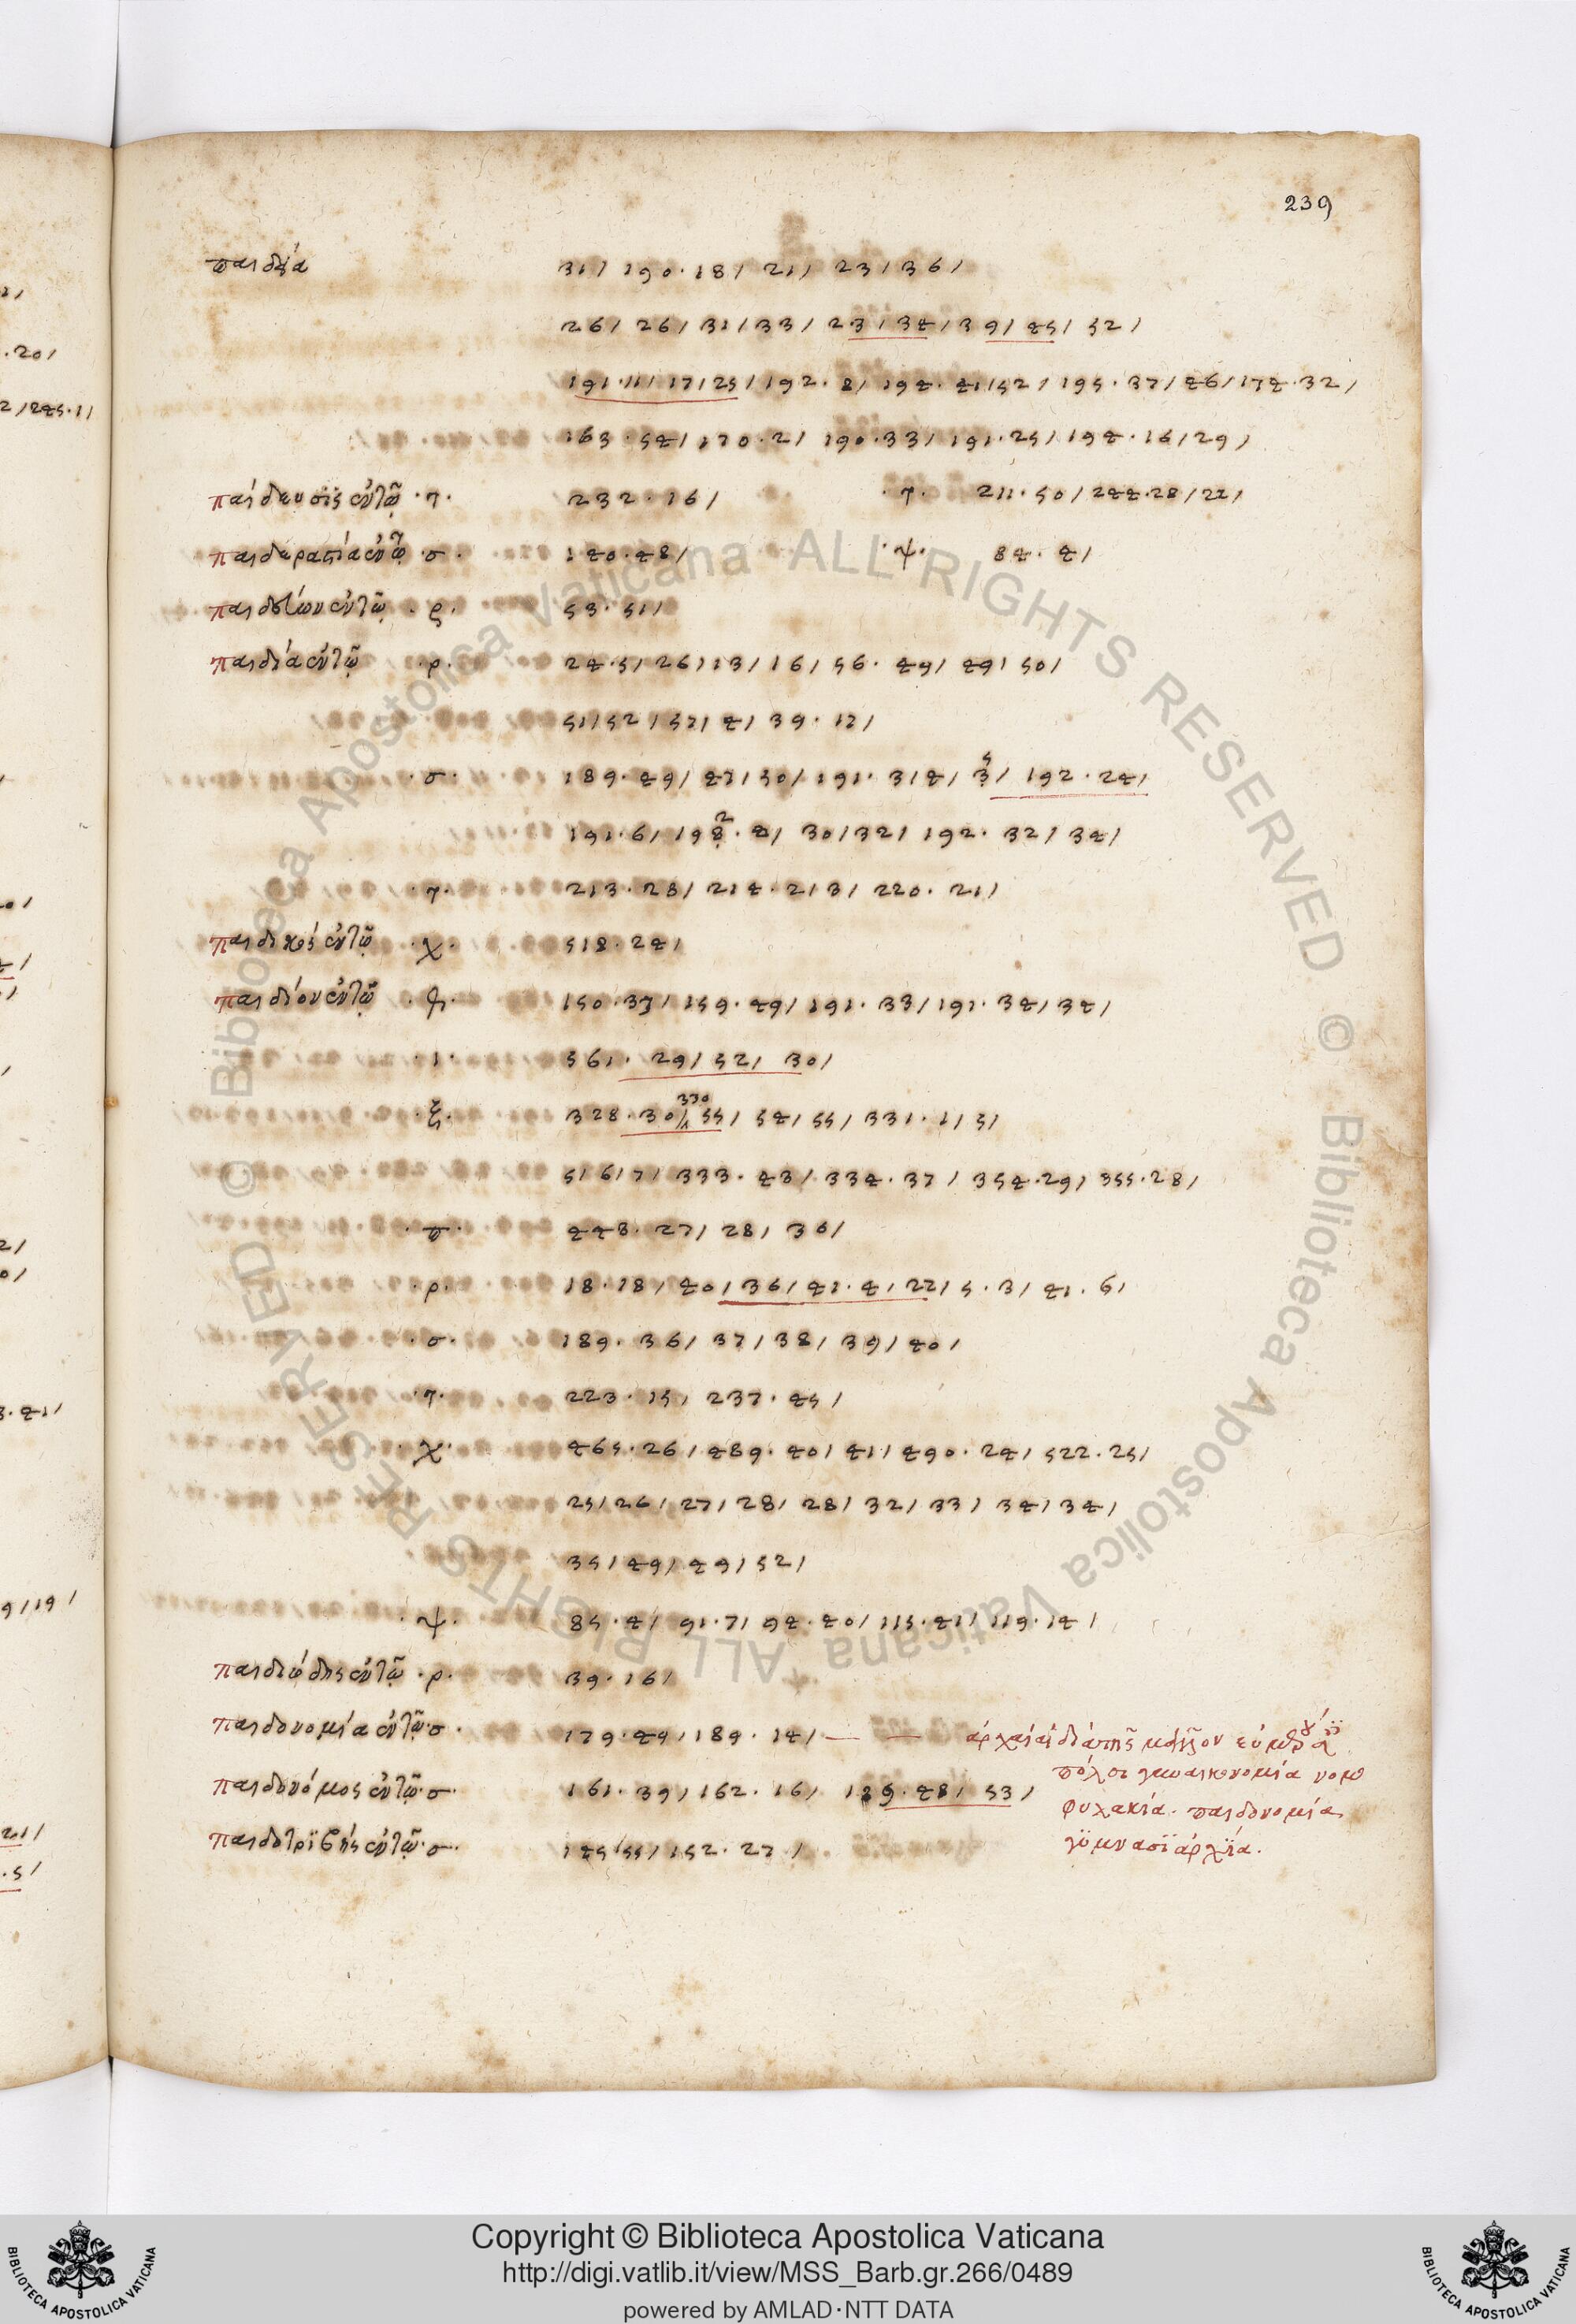 239
παιδεία 31/ 190·18/ 21/ 23/36/
26/ 26/ 31/33/ 23/34/39/45/ 52/
191·11/17/25/192·8/ 194·41/52/ 195·37/46/174·32/
163·54/170·2/ 190·33/ 191·25/194·16/29/
παίδευσις ἐν τῷ ·τ· 232·16/ ·τ· 211·50/244·28/22/
παιδεραστία ἐν τῷ ·σ· 140·48/ ·ψ· 84·4/
ἐν τῷ ·ρ· 53·51/
παιδιά ἐν τῷ ·ρ· 24·5/26/13/16/56·49/49/50/
51/52/57/4/39·17/
·σ· 189·49/47/50/191·3/4/ 192·24/
191·6/ 30/32/192·32/34/
·τ· 213·28/214·2/3/220·21/
παιδικός ἐν τῷ ·χ· 518·24/
παιδίον ἐν τῷ 150·37/159·49/191·33/191·34/34/
·ι· 361·29/52/ 30/
·ξ· 328·30/ 330 55/54/55/331·1/5/
5/6/7/333·43/334·37/354·29/355·28/
·π· 443·27/28/36/
·ρ· 18·18/40/36/41·4/22/5·3/41·6/
·σ· 189·36/37/38/39/40/
·τ· 223·15/237·45/
·χ· 465·26/489·40/41/490·24/522·25/
25/26/27/28/28/32/33/34/34/
35/49/49/52/
·ψ· 85·4/91·7/94·40/115·41/119·14/
παιδιώδης ἐν τῷ ·ρ· 39·16/
παιδονομία ἐν τῷ ·σ· 179·44/189·14/ — —
παιδονόμος ἐν τῷ ·σ· 161·39/162·16/ 189·48/53/
παιδοτρίβης ἐν τῷ ·σ· 145/55/152·27/
πόλσι γυναικονομία νομο
φυλακία· παιδονομία
γϋμνασϊαρχϊα·
© Biblioteca Apostolica Vaticana ALL RIGHTS RESERVED
© Biblioteca Apostolica Vaticana ALL RIGHTS RESERVED
Copyright © Biblioteca Apostolica Vaticana
http://digi.vatlib.it/view/MSS_Barb.gr.266/0489
powered by AMLAD·NTT DATA
BIBLIOTECA APOSTOLICA VATICANA
BIBLIOTECA APOSTOLICA VATICANA